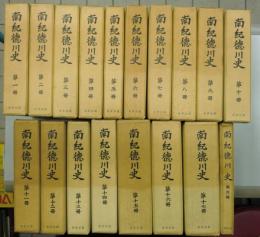 南紀徳川史
第一冊
南紀徳川史
第二冊
南紀徳川史
第三冊
南紀徳川史
第四冊
南紀徳川史
第五冊
南紀徳川史
第六冊
南紀徳川史
第七冊
南紀徳川史
第八冊
南紀徳川史
第九冊
南紀徳川史
第十冊
南紀徳川史
第十一冊
南紀徳川史
第十二冊
南紀徳川史
第十三冊
南紀徳川史
第十四冊
南紀徳川史
第十五冊
南紀徳川史
第十六冊
南紀徳川史
第十七冊
南紀徳川史